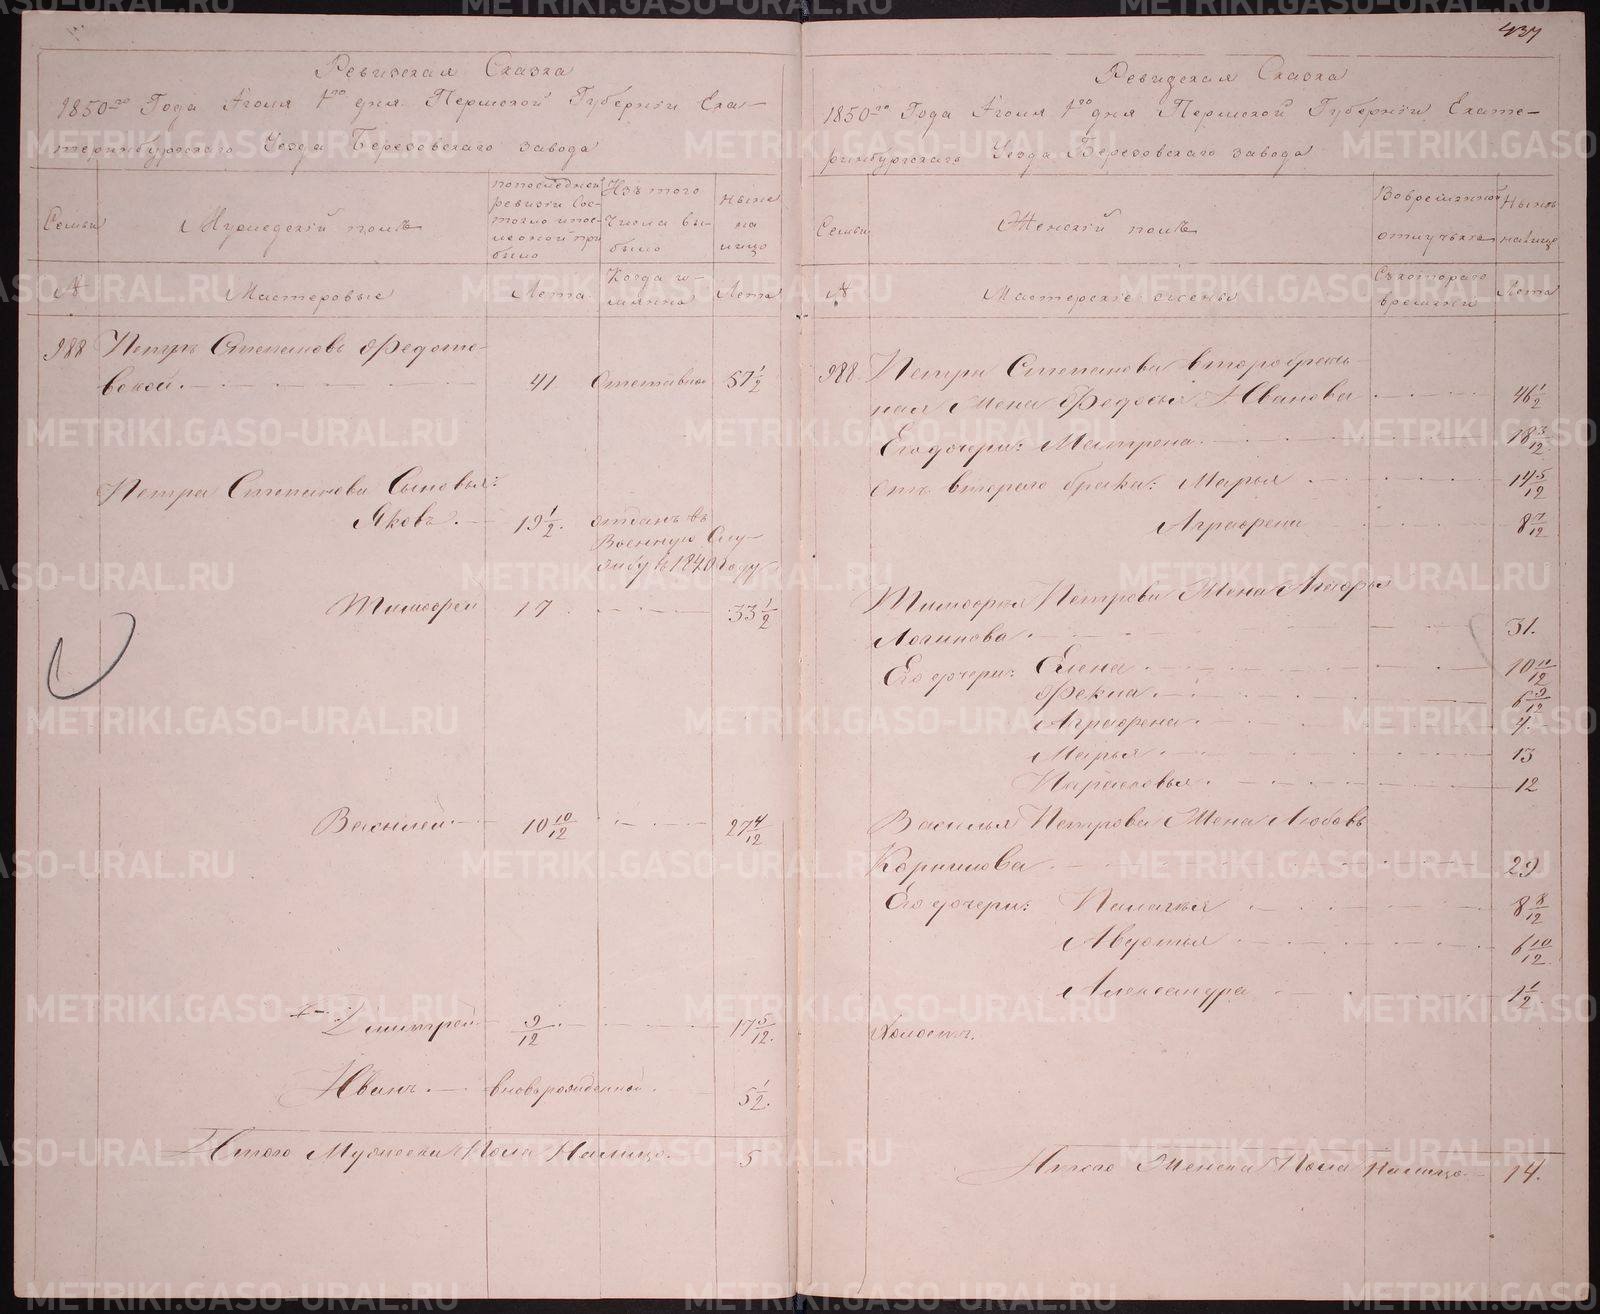 437
Ревизская Сказка
1850го Года Июля 1го дня Пермской Губерніи Ека-
теринбургскаго Уезда Березовскаго завода
Семьи
Мужеский полъ
по последней ревизіи Сос-
тояло и пос-
ле оной при
было
Изъ того
Числа вы-
было
Ныне
на
лицо
№
Мастеровые
Лета
Когда и-
мянно
Лета
988 Петръ Степановъ Федото-
вской. 41 Отставной 57 1/2
Петра Степанова Сыновья:
Яковъ. 19 1/2. отданъ въ
Военную Слу-
жбу въ 1840 году
Тимофей 17 33 1/2
Василей 10 10/12 27 4/12
Дмитрей 9/12 17 5/12.
Иванъ. вновьрожденной. 5 1/2.
Итого Мужеска Пола Налицо. 5
Ревизская Сказка
1850го Года Июля 1го дня Пермской Губерніи Екате-
ринбургскаго Уезда Березовскаго завода
Семьи
Женскій полъ
Во временной
отлучьке
Нынъ
на лице
№
Мастерскіе жены
Съ котораго
времяни
Лета
988. Петра Степанова второбрач-
ная Жена Федосья Иванова 46 1/2
Его дочери: Матрена 18 3/12
отъ втораго брака: Марья 14 5/12
Аграфена 8 7/12
Тимофея Петрова Жена Агафья
Логинова 31.
Его дочери: Елена 10 11/12
Фекла 6 9/12
Аграфена 4.
Марья 13
Парасковья 12
Василья Петрова Жена Любовь
Корнилова 29
Его дочери: Палагья 8 8/12
Авдотья 6 10/12
Александра 1 1/2
Холостъ.
Итого Женска Пола налицо 14.
METRIKI.GASO-URAL.RU